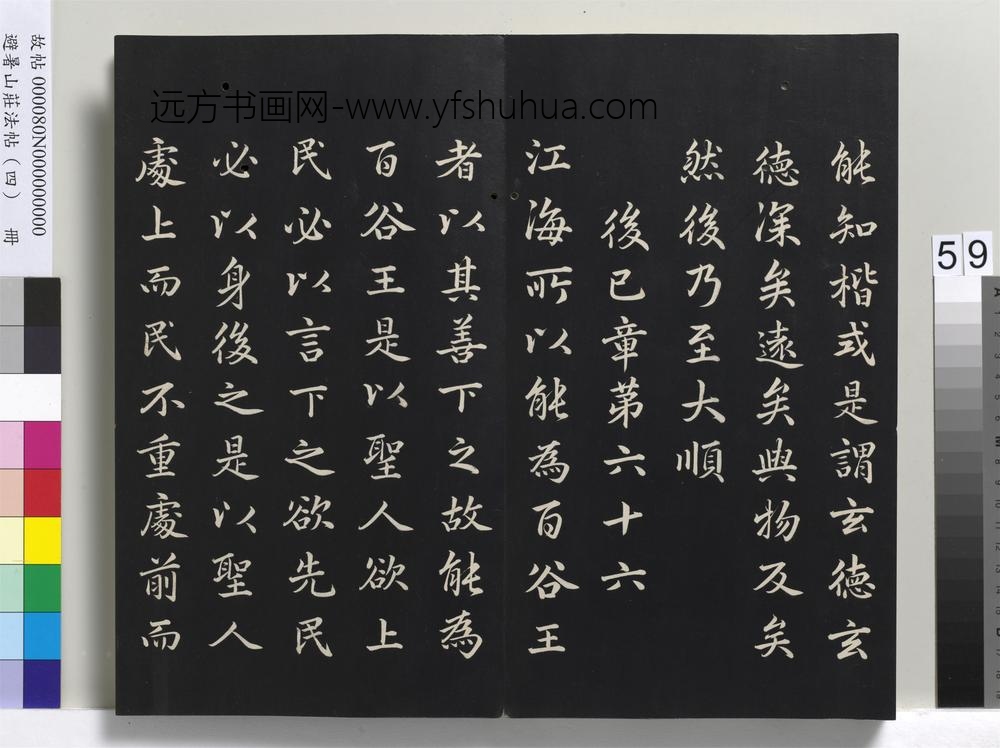 能知楷式是謂玄德玄
德深矣遠矣與物反矣
然後乃至大順
後已章第六十六
江海所以能為百谷王
者以其善下之故能為
百谷王是以聖人欲上
民必以言下之欲先民
必以身後之是以聖人
處上而民不重處前而
远方书画网-www.yfshuhua.com
故帖 000080N000000000
避暑山莊法帖(四) 冊
59